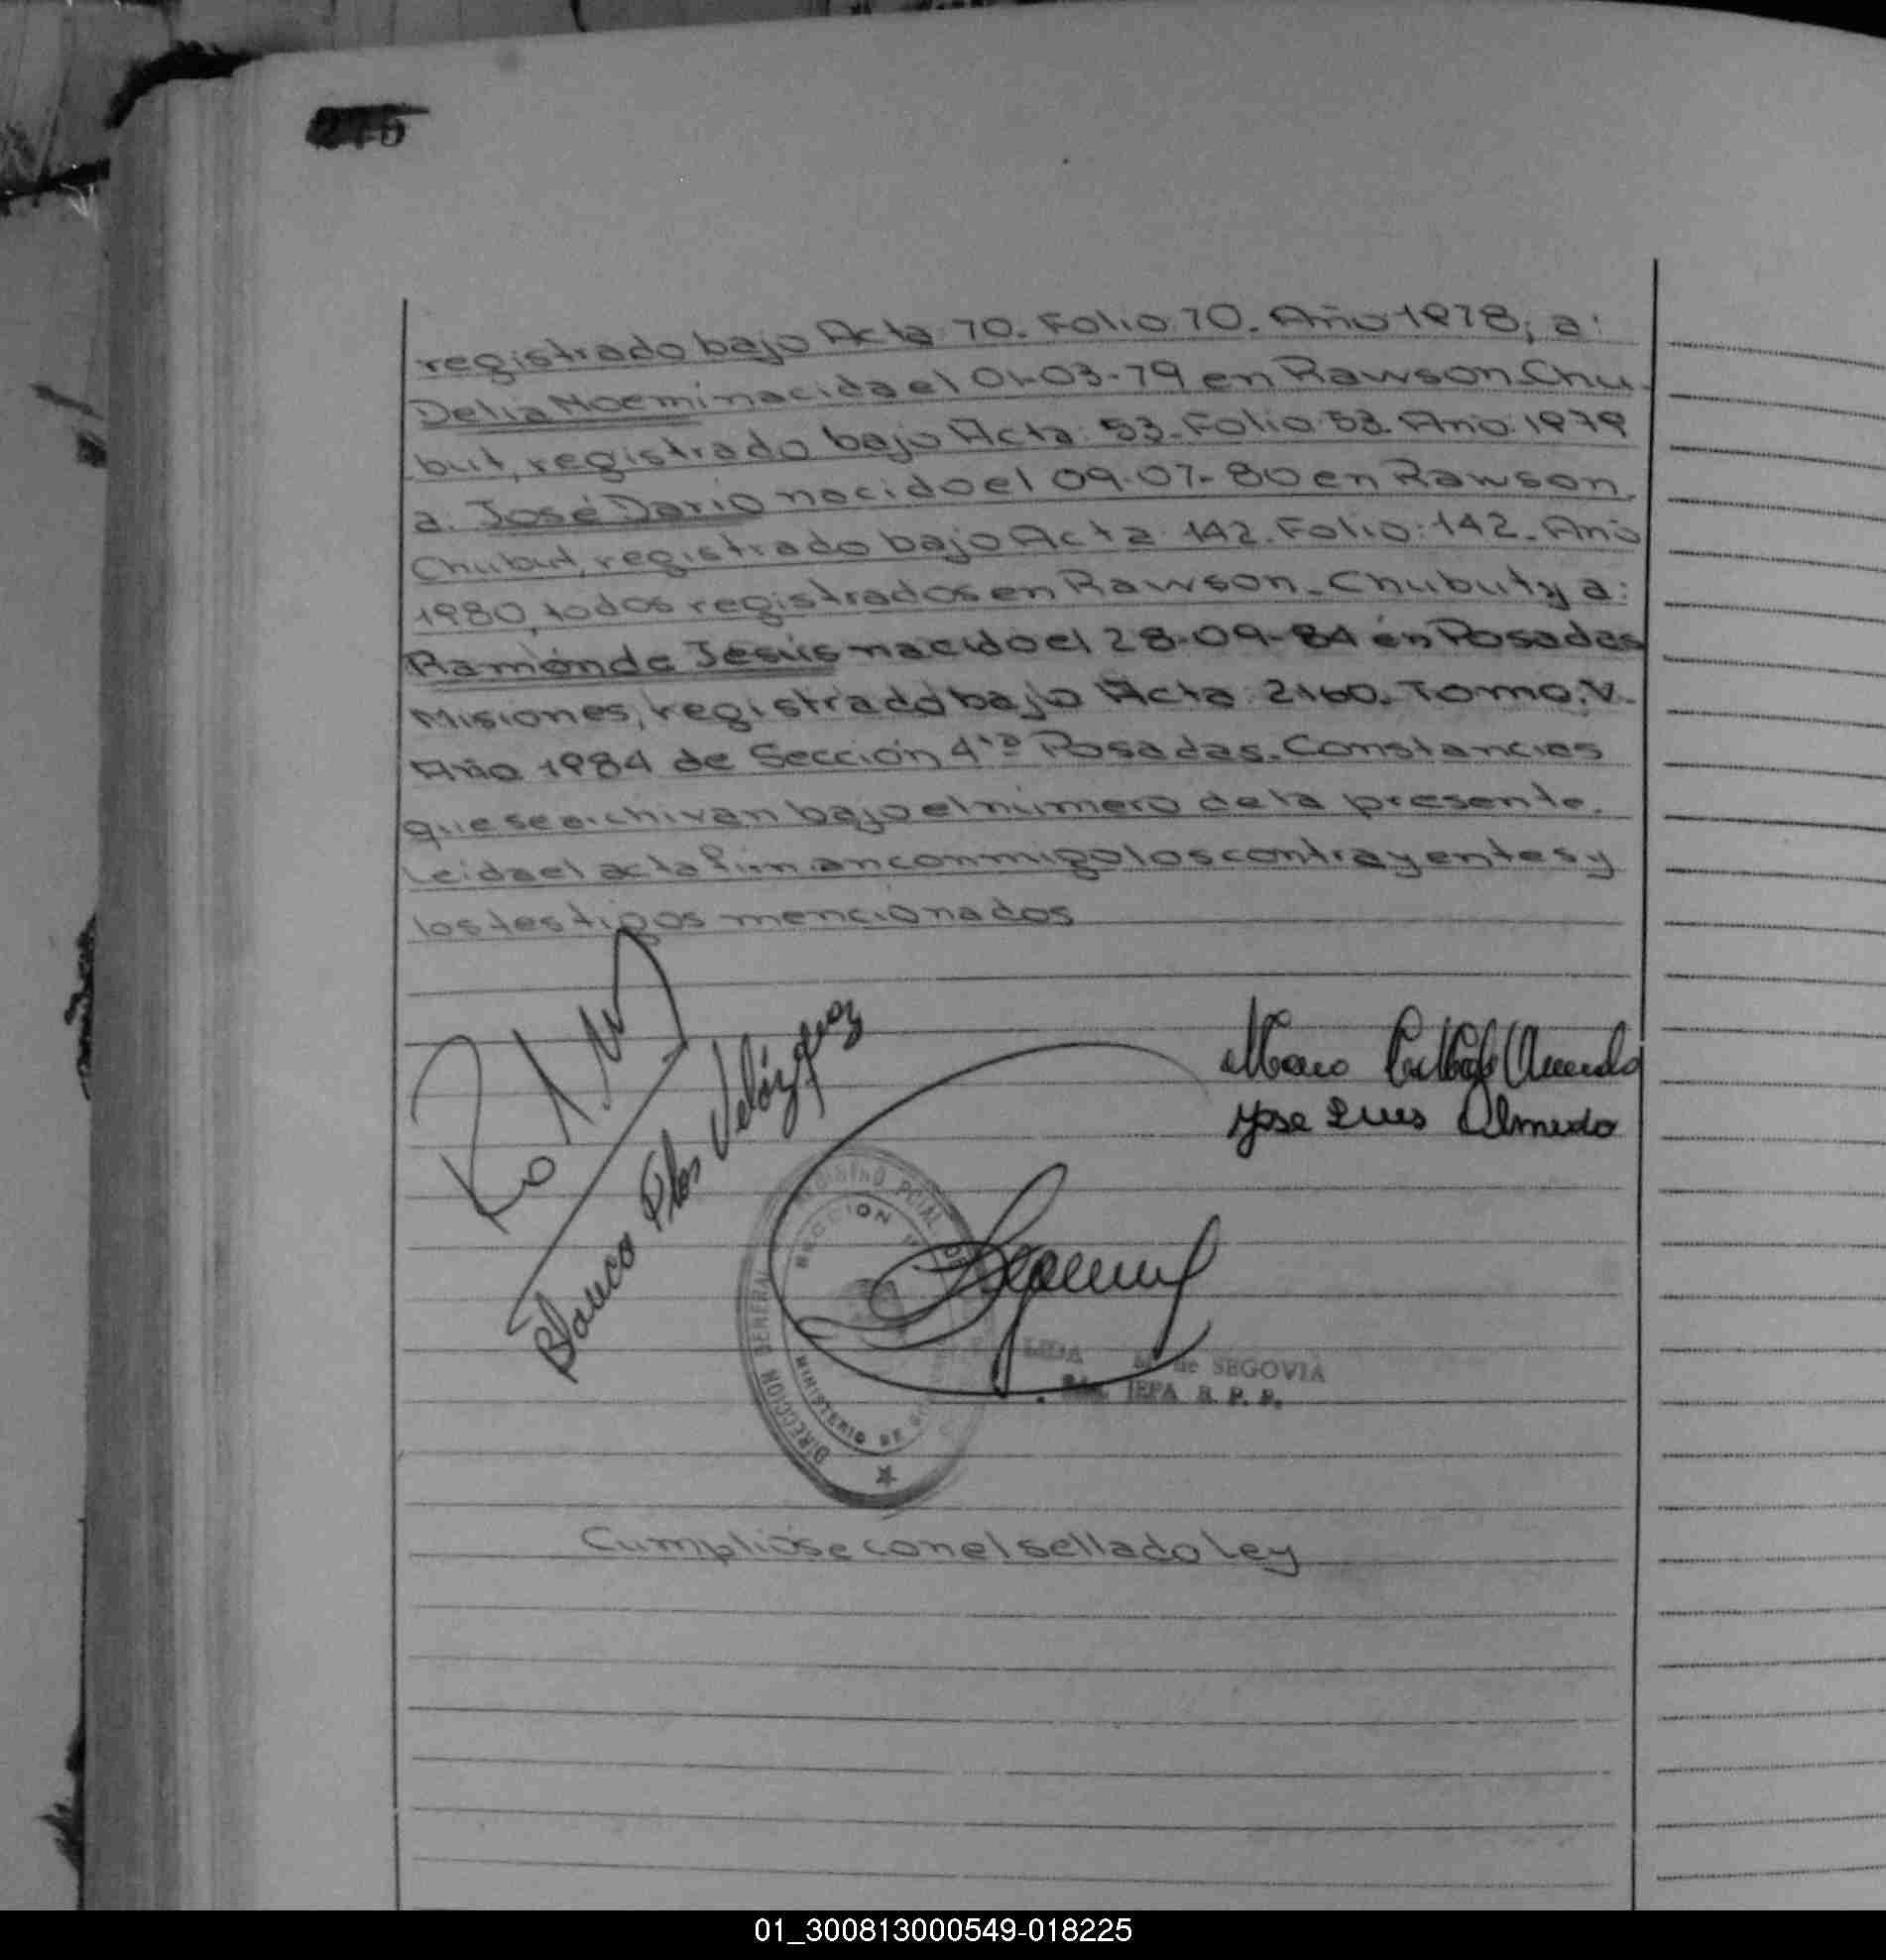 registrado bajo Acta: 70. Folio: 70. Año 1978, a:
Delia Noemí nacida el 01-03-79 en Rawson-Chu
but, registrado bajo Acta: 53. Folio 53. Año: 1979
a. José Darío nacido el 09-07-80 en Rawson.
Chubut, registrado bajo Acta 142. Folio: 142. Año
1980, todos registrados en Rawson-Chubut y a:
Ramón de Jesús nacido el 28-09-84 en Posadas
Misiones, registrado bajo Acta: 2160. Tomo: V.
Año 1984 de Sección 4ta Posadas. Constancias
que se archivan bajo el número de la presente.
Leida el acta firman conmigo los contrayentes y
los testigos mencionados
Velázquez
Jose Luis Olmedo
SECCION
DIRECCION GENERAL
MINISTERIO DE
de SEGOVIA
JEFA R. P. P.
Cumplióse con el sellado ley
01_300813000549-018225